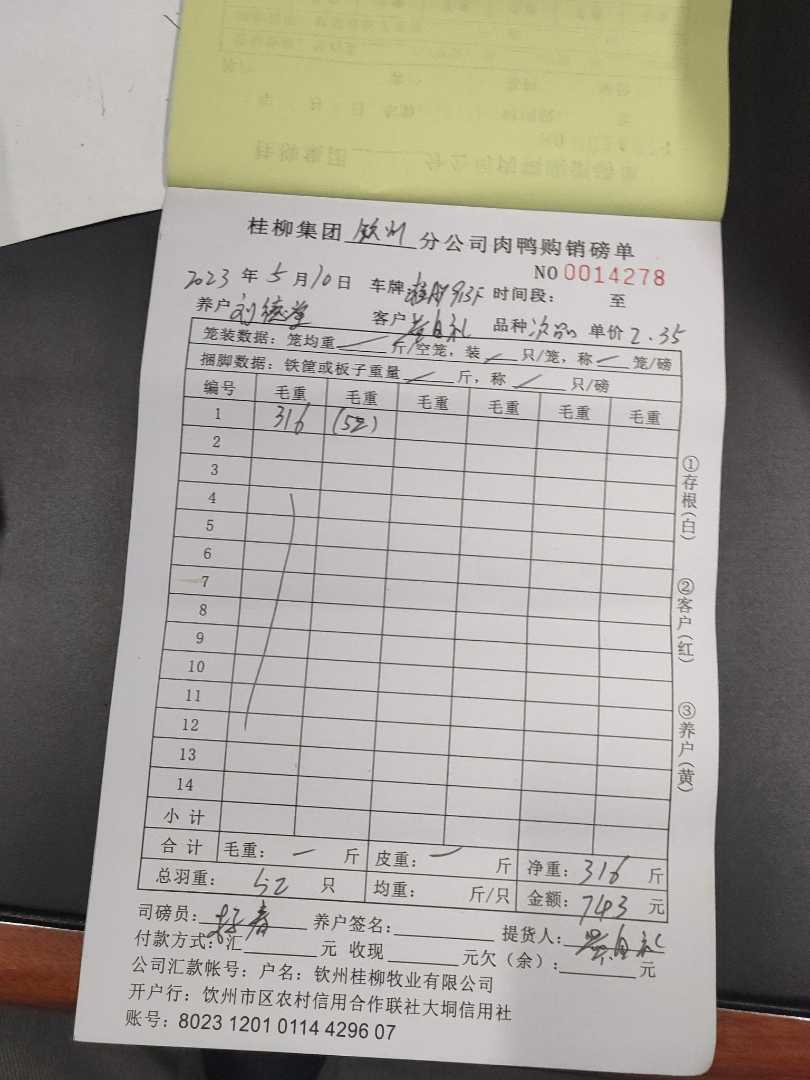 桂柳集团 钦州 分公司肉鸭购销磅单
NO 0014278
2023 年 5 月 10 日 车牌 913F 时间段： 至
养户 刘德堂 客户 自礼 品种 次品 单价 2.35
笼装数据：笼均重 斤/空笼，装 只/笼，称 笼/磅
捆脚数据：铁筐或板子重量 斤，称 只/磅
编号 毛重 毛重 毛重 毛重 毛重 毛重
1 316 (52)
2
3
4
5
6
7
8
9
10
11
12
13
14
小 计
合 计 毛重： 一 斤 皮重： 一 斤 净重： 316 斤
总羽重： 52 只 均重： 斤/只 金额： 743 元
司磅员： 养户签名： 提货人： 自礼
付款方式：汇 元 收现 元欠（余）： 元
公司汇款帐号：户名：钦州桂柳牧业有限公司
开户行：饮州市区农村信用合作联社大垌信用社
账号：8023 1201 0114 4296 07
①存根(白) ②客户(红) ③养户(黄)